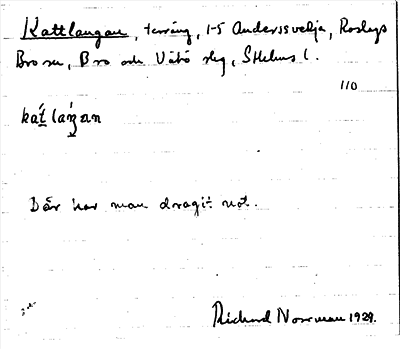 Kattlangan, terräng, 1-5 Anderssvedja, Roslags
Bro sn, Bro och Vätö slg, Sthlms l.
110
Där har man dragit not.
Richard Norrman 1929.